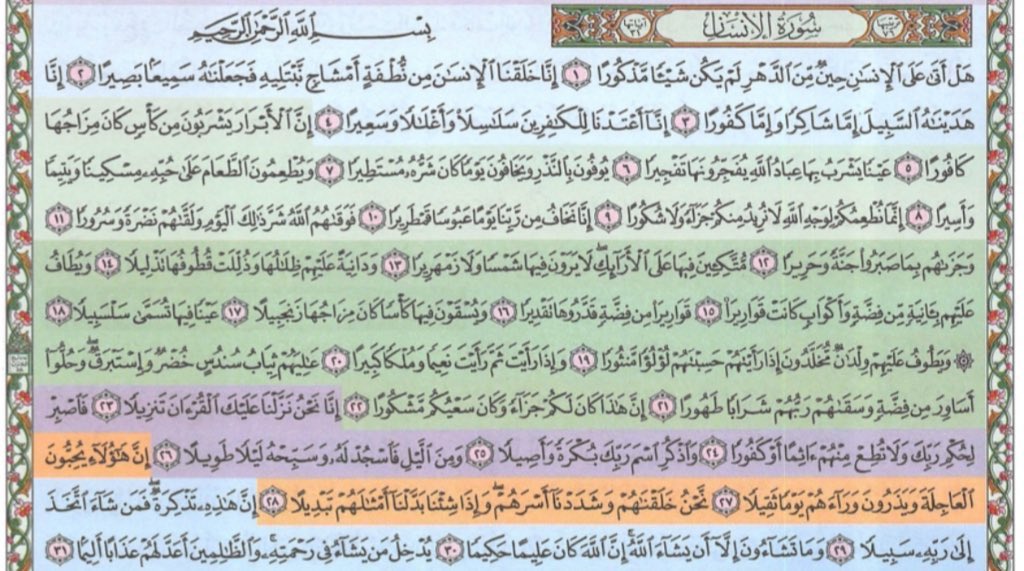 ترتيبها ٧٦ سُورَةُ الإِنسَان آياتها ٣١
بِسْمِ ٱللَّهِ ٱلرَّحْمَٰنِ ٱلرَّحِيمِ
هَلْ أَتَىٰ عَلَى ٱلْإِنسَٰنِ حِينٌ مِّنَ ٱلدَّهْرِ لَمْ يَكُن شَيْـًٔا مَّذْكُورًا ١ إِنَّا خَلَقْنَا ٱلْإِنسَٰنَ مِن نُّطْفَةٍ أَمْشَاجٍ نَّبْتَلِيهِ فَجَعَلْنَٰهُ سَمِيعًۢا بَصِيرًا ٢ إِنَّا
هَدَيْنَٰهُ ٱلسَّبِيلَ إِمَّا شَاكِرًا وَإِمَّا كَفُورًا ٣ إِنَّآ أَعْتَدْنَا لِلْكَٰفِرِينَ سَلَٰسِلَا۟ وَأَغْلَٰلًا وَسَعِيرًا ٤ إِنَّ ٱلْأَبْرَارَ يَشْرَبُونَ مِن كَأْسٍ كَانَ مِزَاجُهَا
كَافُورًا ٥ عَيْنًا يَشْرَبُ بِهَا عِبَادُ ٱللَّهِ يُفَجِّرُونَهَا تَفْجِيرًا ٦ يُوفُونَ بِٱلنَّذْرِ وَيَخَافُونَ يَوْمًا كَانَ شَرُّهُۥ مُسْتَطِيرًا ٧ وَيُطْعِمُونَ ٱلطَّعَامَ عَلَىٰ حُبِّهِۦ مِسْكِينًا وَيَتِيمًا
وَأَسِيرًا ٨ إِنَّمَا نُطْعِمُكُمْ لِوَجْهِ ٱللَّهِ لَا نُرِيدُ مِنكُمْ جَزَآءً وَلَا شُكُورًا ٩ إِنَّا نَخَافُ مِن رَّبِّنَا يَوْمًا عَبُوسًا قَمْطَرِيرًا ١٠ فَوَقَىٰهُمُ ٱللَّهُ شَرَّ ذَٰلِكَ ٱلْيَوْمِ وَلَقَّىٰهُمْ نَضْرَةً وَسُرُورًا ١١
وَجَزَىٰهُم بِمَا صَبَرُوا۟ جَنَّةً وَحَرِيرًا ١٢ مُّتَّكِـِٔينَ فِيهَا عَلَى ٱلْأَرَآئِكِ ۖ لَا يَرَوْنَ فِيهَا شَمْسًا وَلَا زَمْهَرِيرًا ١٣ وَدَانِيَةً عَلَيْهِمْ ظِلَٰلُهَا وَذُلِّلَتْ قُطُوفُهَا تَذْلِيلًا ١٤ وَيُطَافُ
عَلَيْهِم بِـَٔانِيَةٍ مِّن فِضَّةٍ وَأَكْوَابٍ كَانَتْ قَوَارِيرَا۠ ١٥ قَوَارِيرَا۟ مِن فِضَّةٍ قَدَّرُوهَا تَقْدِيرًا ١٦ وَيُسْقَوْنَ فِيهَا كَأْسًا كَانَ مِزَاجُهَا زَنجَبِيلًا ١٧ عَيْنًا فِيهَا تُسَمَّىٰ سَلْسَبِيلًا ١٨
۞ وَيَطُوفُ عَلَيْهِمْ وِلْدَٰنٌ مُّخَلَّدُونَ إِذَا رَأَيْتَهُمْ حَسِبْتَهُمْ لُؤْلُؤًا مَّنثُورًا ١٩ وَإِذَا رَأَيْتَ ثَمَّ رَأَيْتَ نَعِيمًا وَمُلْكًا كَبِيرًا ٢٠ عَٰلِيَهُمْ ثِيَابُ سُندُسٍ خُضْرٌ وَإِسْتَبْرَقٌ ۖ وَحُلُّوٓا۟
أَسَاوِرَ مِن فِضَّةٍ وَسَقَىٰهُمْ رَبُّهُمْ شَرَابًا طَهُورًا ٢١ إِنَّ هَٰذَا كَانَ لَكُمْ جَزَآءً وَكَانَ سَعْيُكُم مَّشْكُورًا ٢٢ إِنَّا نَحْنُ نَزَّلْنَا عَلَيْكَ ٱلْقُرْءَانَ تَنزِيلًا ٢٣ فَٱصْبِرْ
لِحُكْمِ رَبِّكَ وَلَا تُطِعْ مِنْهُمْ ءَاثِمًا أَوْ كَفُورًا ٢٤ وَٱذْكُرِ ٱسْمَ رَبِّكَ بُكْرَةً وَأَصِيلًا ٢٥ وَمِنَ ٱلَّيْلِ فَٱسْجُدْ لَهُۥ وَسَبِّحْهُ لَيْلًا طَوِيلًا ٢٦ إِنَّ هَٰٓؤُلَآءِ يُحِبُّونَ
ٱلْعَاجِلَةَ وَيَذَرُونَ وَرَآءَهُمْ يَوْمًا ثَقِيلًا ٢٧ نَّحْنُ خَلَقْنَٰهُمْ وَشَدَدْنَآ أَسْرَهُمْ ۖ وَإِذَا شِئْنَا بَدَّلْنَآ أَمْثَٰلَهُمْ تَبْدِيلًا ٢٨ إِنَّ هَٰذِهِۦ تَذْكِرَةٌ ۖ فَمَن شَآءَ ٱتَّخَذَ
إِلَىٰ رَبِّهِۦ سَبِيلًا ٢٩ وَمَا تَشَآءُونَ إِلَّآ أَن يَشَآءَ ٱللَّهُ ۚ إِنَّ ٱللَّهَ كَانَ عَلِيمًا حَكِيمًا ٣٠ يُدْخِلُ مَن يَشَآءُ فِى رَحْمَتِهِۦ ۚ وَٱلظَّٰلِمِينَ أَعَدَّ لَهُمْ عَذَابًا أَلِيمًۢا ٣١